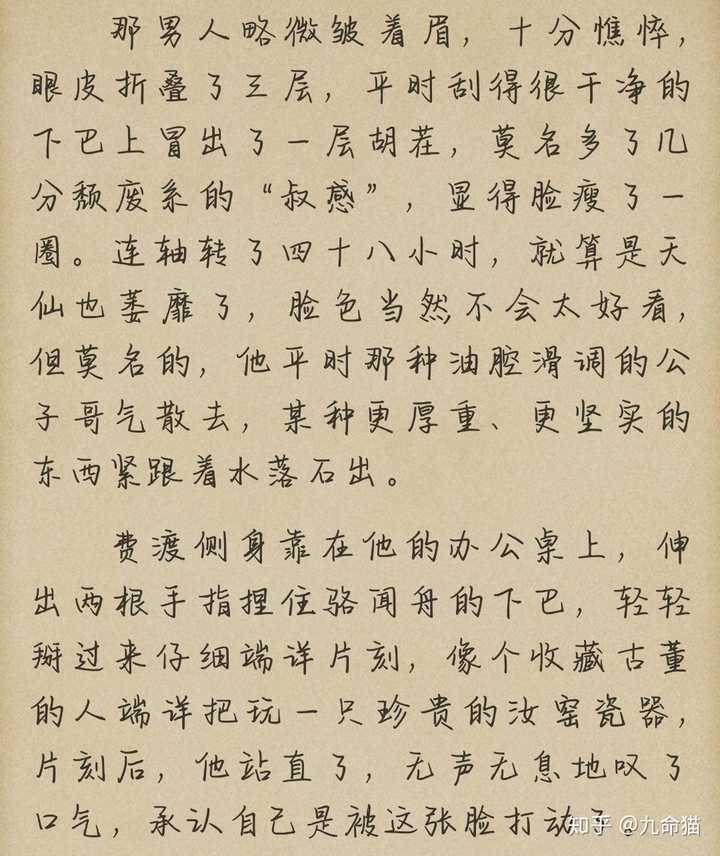 那男人略微皱着眉，十分憔悴，
眼皮折叠了三层，平时刮得很干净的
下巴上冒出了一层胡茬，莫名多了几
分颓废系的“叔感”，显得脸瘦了一
圈。连轴转了四十八小时，就算是天
仙也萎靡了，脸色当然不会太好看，
但莫名的，他平时那种油腔滑调的公
子哥气散去，某种更厚重、更坚实的
东西紧跟着水落石出。
费渡侧身靠在他的办公桌上，伸
出两根手指捏住骆闻舟的下巴，轻轻
掰过来仔细端详片刻，像个收藏古董
的人端详把玩一只珍贵的汝窑瓷器，
片刻后，他站直了，无声无息地叹了
口气，承认自己是被这张脸打动了。
知乎 @九命猫